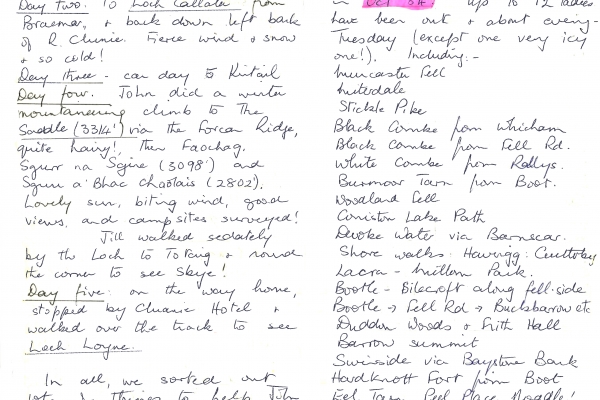 Day Two. To Loch Callata from
Braemar, & back down left bank
of R. Clunie. Fierce wind & snow
& so cold!
Day three - car day to Kintail
Day four. John did a winter
mountaineering climb to the
Saddle (3314') via the Forcan Ridge,
quite hairy! then Faochag.
Sgurr na Sgine (3098') and
Sgurr a' Bhac Chaolais (2802').
Lovely sun, biting wind, good
views, and campsites surveyed!
Jill walked sedately
by the Loch to Totaig & round
the corner to see Skye!
Day five: on the way home,
stopped by Cluanie Hotel &
walked over the track to see
Loch Loyne.
In all, we sorted out
lots of things to help John
in Oct 84. Up to 12 ladies
have been out & about every
Tuesday (except one very icy
one!). Including:-
Muncaster Fell
Miterdale
Stickle Pike
Black Combe from Whicham
Black Combe from Fell Rd.
White Combe from Rallys.
Burnmoor Tarn from Boot.
Woodland Fell
Coniston Lake Path
Devoke Water via Barnscar.
Shore walks: Haverigg:
Lacra - Millom Park.
Bootle - Bilecroft along fell-side
Bootle → Fell Rd → Bucksbarrow etc
Duddon Woods & Frith Hall
Barrow summit
Swinside via Baystone Bank
Hardknott Fort from Boot
Eel Tarn, Peel Place Noddle!